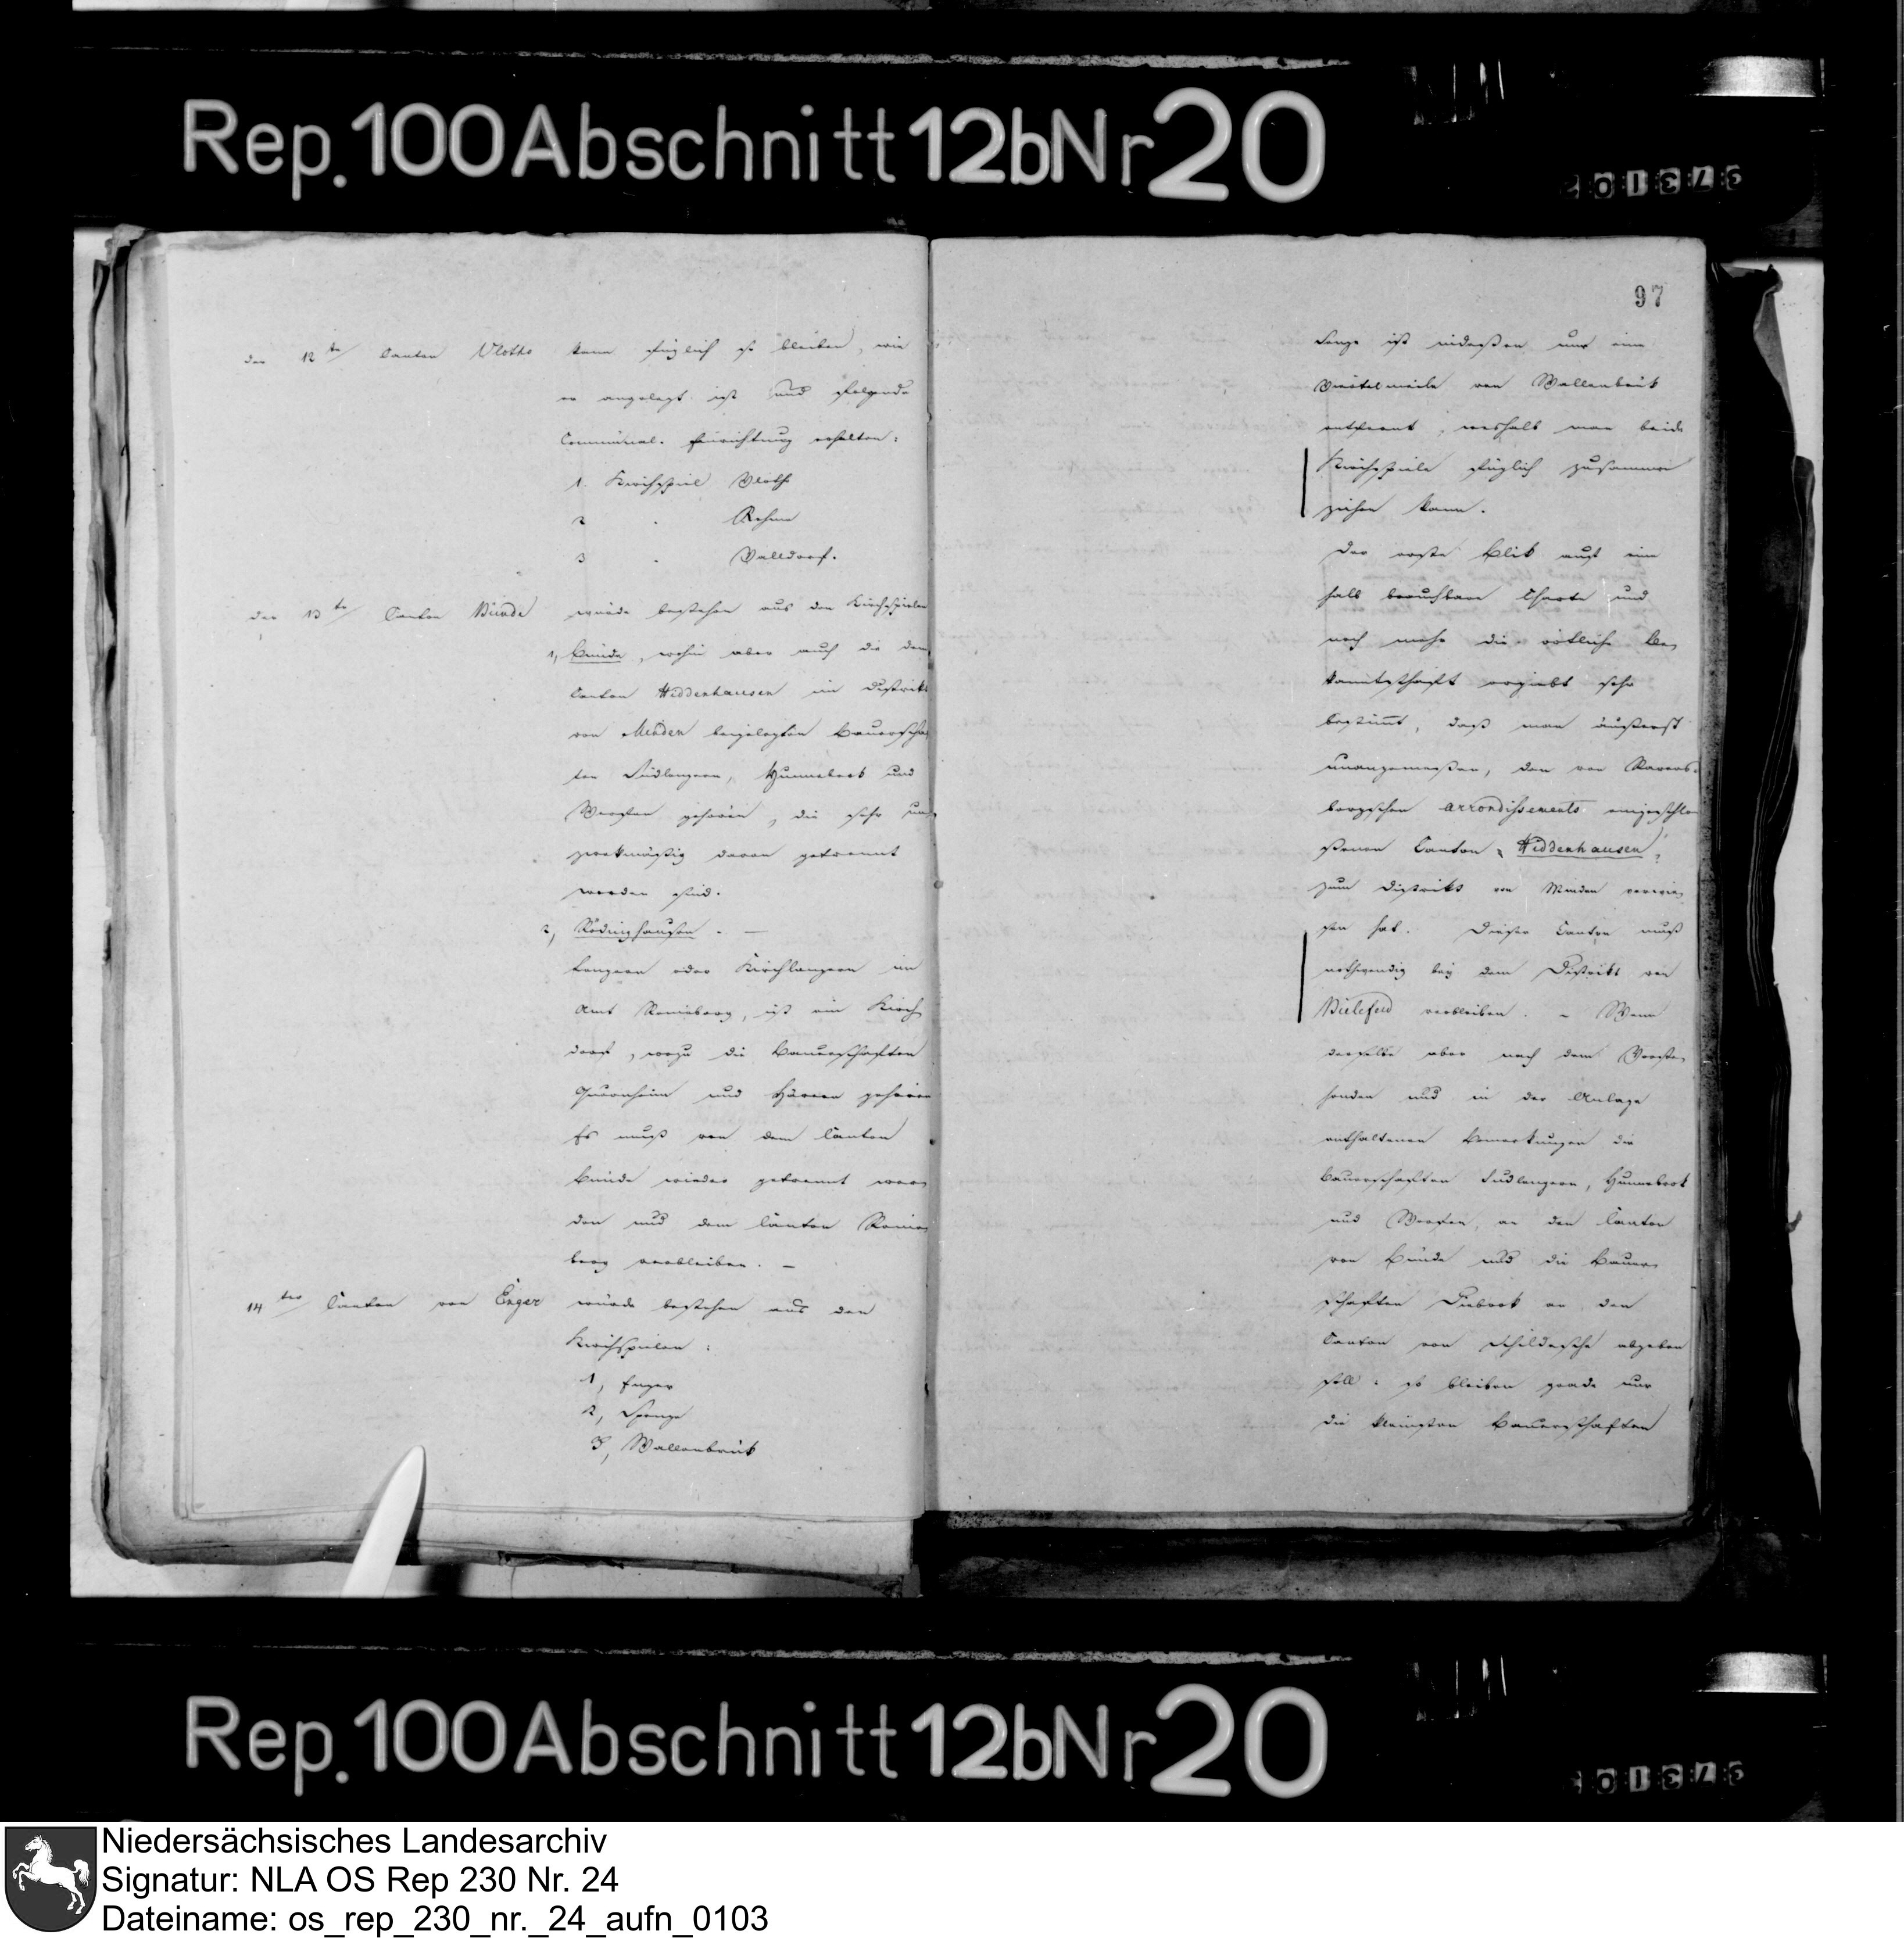 Rep. 100 Abschnitt 12b Nr 20
der 12te Canton Vlotho kann füglich so bleiben, wie
er angelegt ist und folgende
Communal-Einrichtung erhalten:
1. Kirchspiel Vlotho
2 - Rehme
3 - Valldorf.
der 13te Canton Bünde würde bestehen aus den Kirchspielen
1, Bünde, wohin aber auch die dem
Canton Hiddenhausen im Distrikt
von Minden beigelegten Bauerschaf
ten Südlengern, Hunnebrok und
Werfen gehören, die sehr un
zwekmäßig davon getrennt
worden sind.
2, Rödinghausen. —
Lengern oder Kirchlengern im
Amt Reineberg, ist ein Kirch
dorf, wozu die Bauerschaften
Quernheim und Häver gehören
Es muß von dem Canton
Bünde wieder getrennt wer
den und dem Canton Reine
berg verbleiben. —
14ter Canton von Enger würde bestehen aus den
Kirchspielen:
1, Enger
2, Spenge
3, Wallenbrük
97
Spenge ist indeßen nur eine
Viertelmeile von Wallenbrük
entfernt, weshalb man beide
Kirchspiele füglich zusammen
ziehen kann.
Der erste Blik auf eine
halb brauchbare Charte und
noch mehr die örtliche Be
kanntschaft ergiebt sehr
bestimmt, daß man äußerst
unangemeßen, den von Ravens-
bergschen arrondissements eingeschlo
ßenen Canton Hiddenhausen,
zum Distrikt von Minden verwie
sen hat. Dieser Canton muß
nothwendig bey dem Distrikt von
Bielefeld verbleiben. - Wenn
derselbe aber nach dem Vorste
henden und in der Anlage
enthaltenen Bemerkungen die
Bauerschaften Südlengern, Hunnebrok
und Werfen, an den Canton
von Bünde und die Bauer
schaften Diebrok an den
Canton von Schildesche abgeben
soll: so bleiben grade nur
die kleinsten Bauerschaften
Rep. 100 Abschnitt 12b Nr 20
Niedersächsisches Landesarchiv
Signatur: NLA OS Rep 230 Nr. 24
Dateiname: os_rep_230_nr._24_aufn_0103